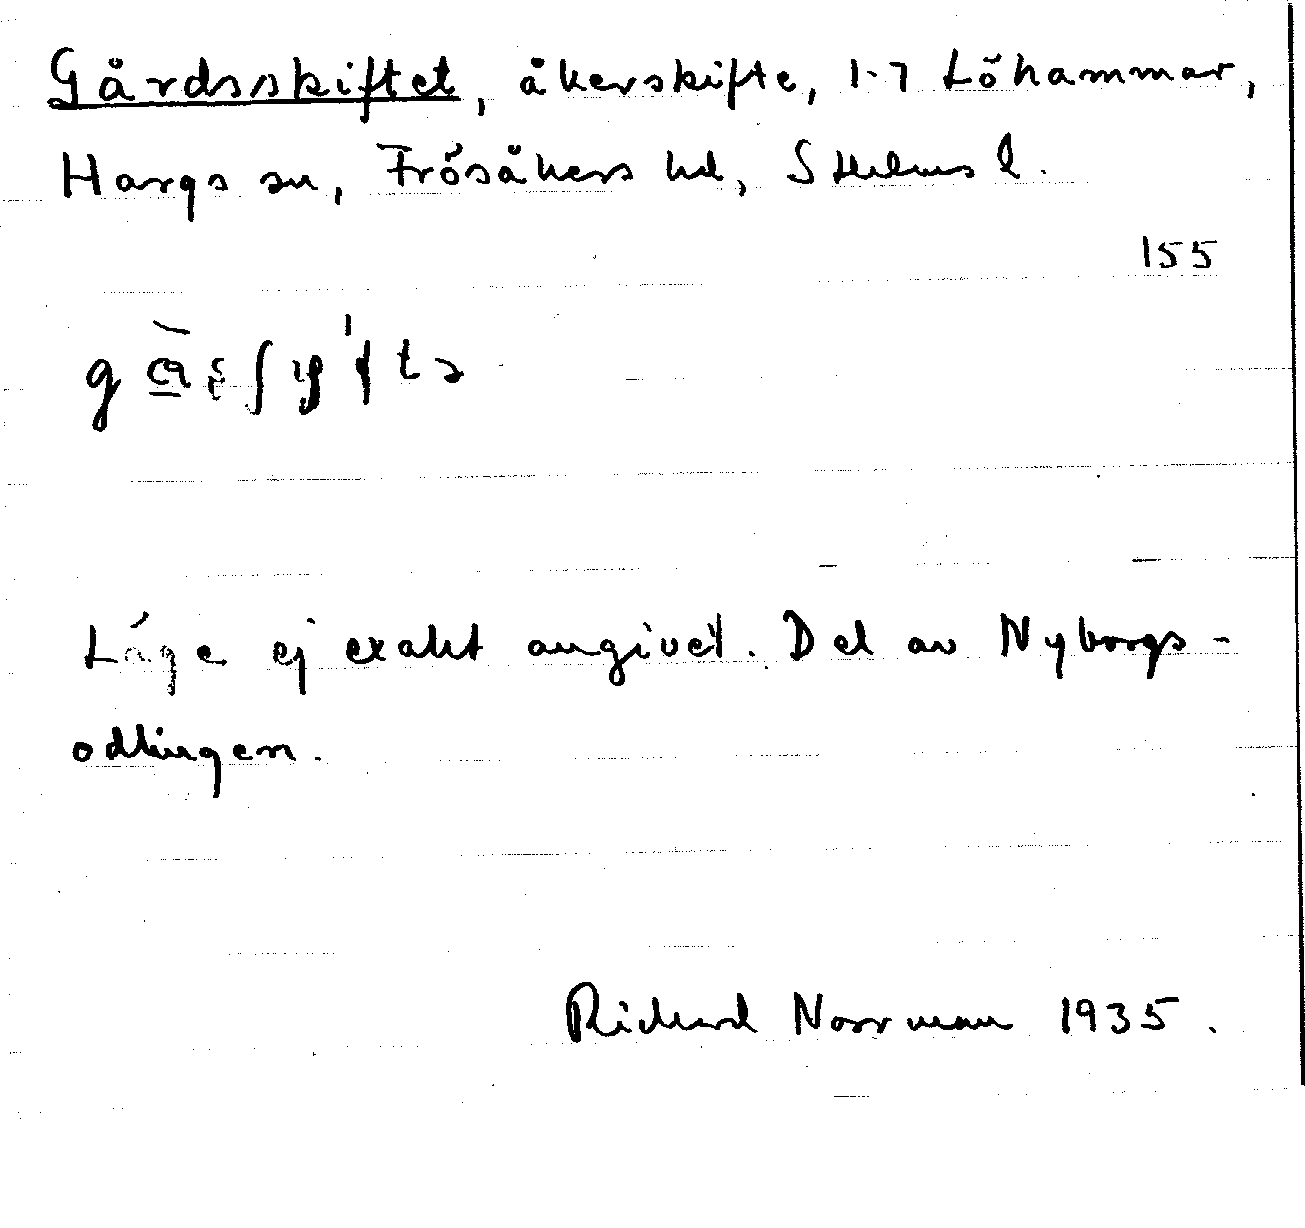 Gårdsskiftet, åkerskifte, 1-7 Löhammar,
Hargs sn, Frösåkers hd, Sthlms l.
155
Läge ej exakt angivet. Del av Nyborgs-
odlingen.
Richard Norrman 1935.